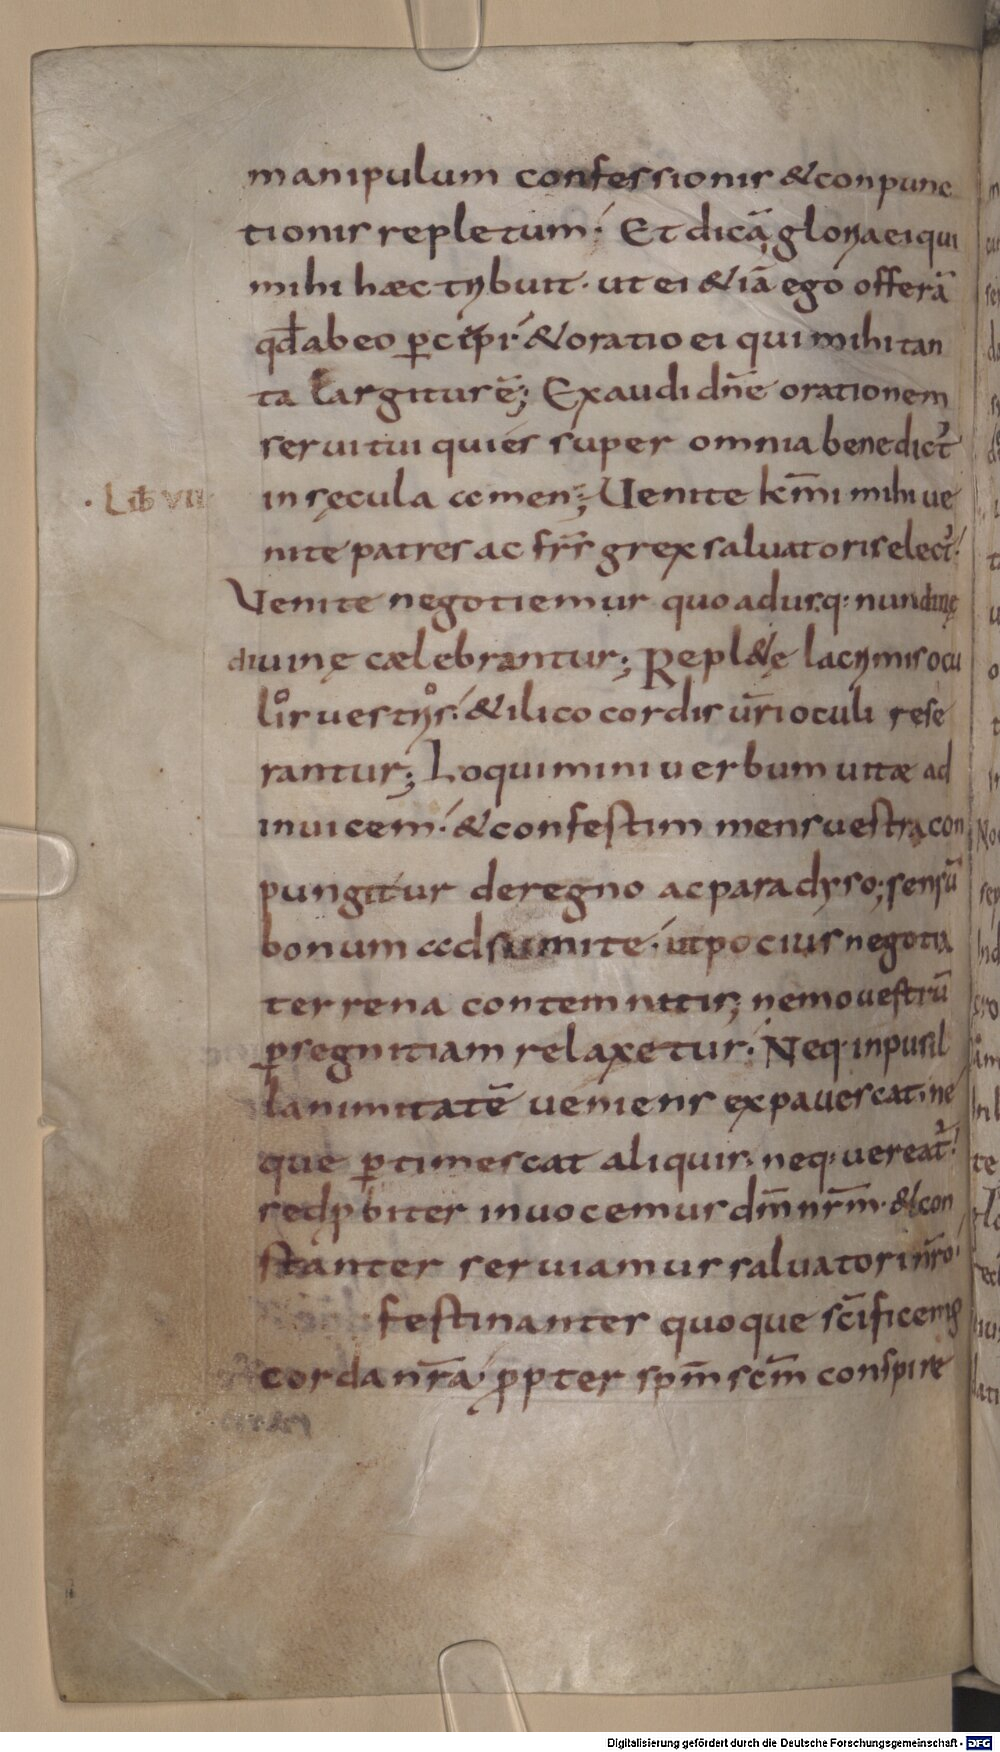 manipulum confessionis & conpunc
tionis repletum; Et dicā gloria ei qui
mihi hæc tribuit. ut ei & iā ego offerā
qđ ab eo p̱cipi. & oratio ei qui mihi tan
ta largitur ē; Exaudi dn̄e orationem
servi tui qui es super omnia benedict᾽
in sęcula amen; Uenite km̄i mihi ue
nite patres ac fr̄s grex salvatoris elect᾽
Venite negotiemur quo adusq: nundinę
divinę cælebrantur; Repl&e lacrymis ocu
lo᷒s vestros. & ilico cordis ūri oculi rese
rantur; Loquimini verbum vitæ ad
· Lib VII
invicem. & confestim mens vestra con
pungitur de regno ac paradyso; sensū
bonum adsumite. ut pocius negotia
terrena contemnitis; nemo vestrū
p̱ segnitiam relaxetur. Neq: in pusil
lanimitatē veniens expavescat. ne
que p̱timescat aliquis. neq: vereat᾽
sed p̱biter invocemus dm̄ nr̄m. & con
stanter serviamus salvatori nr̄o.
festinanter quoque sc̄ificemus
corda nr̄a. ꝓpter sp̄m sc̄m conspire
Digitalisierung gefördert durch die Deutsche Forschungsgemeinschaft - DFG